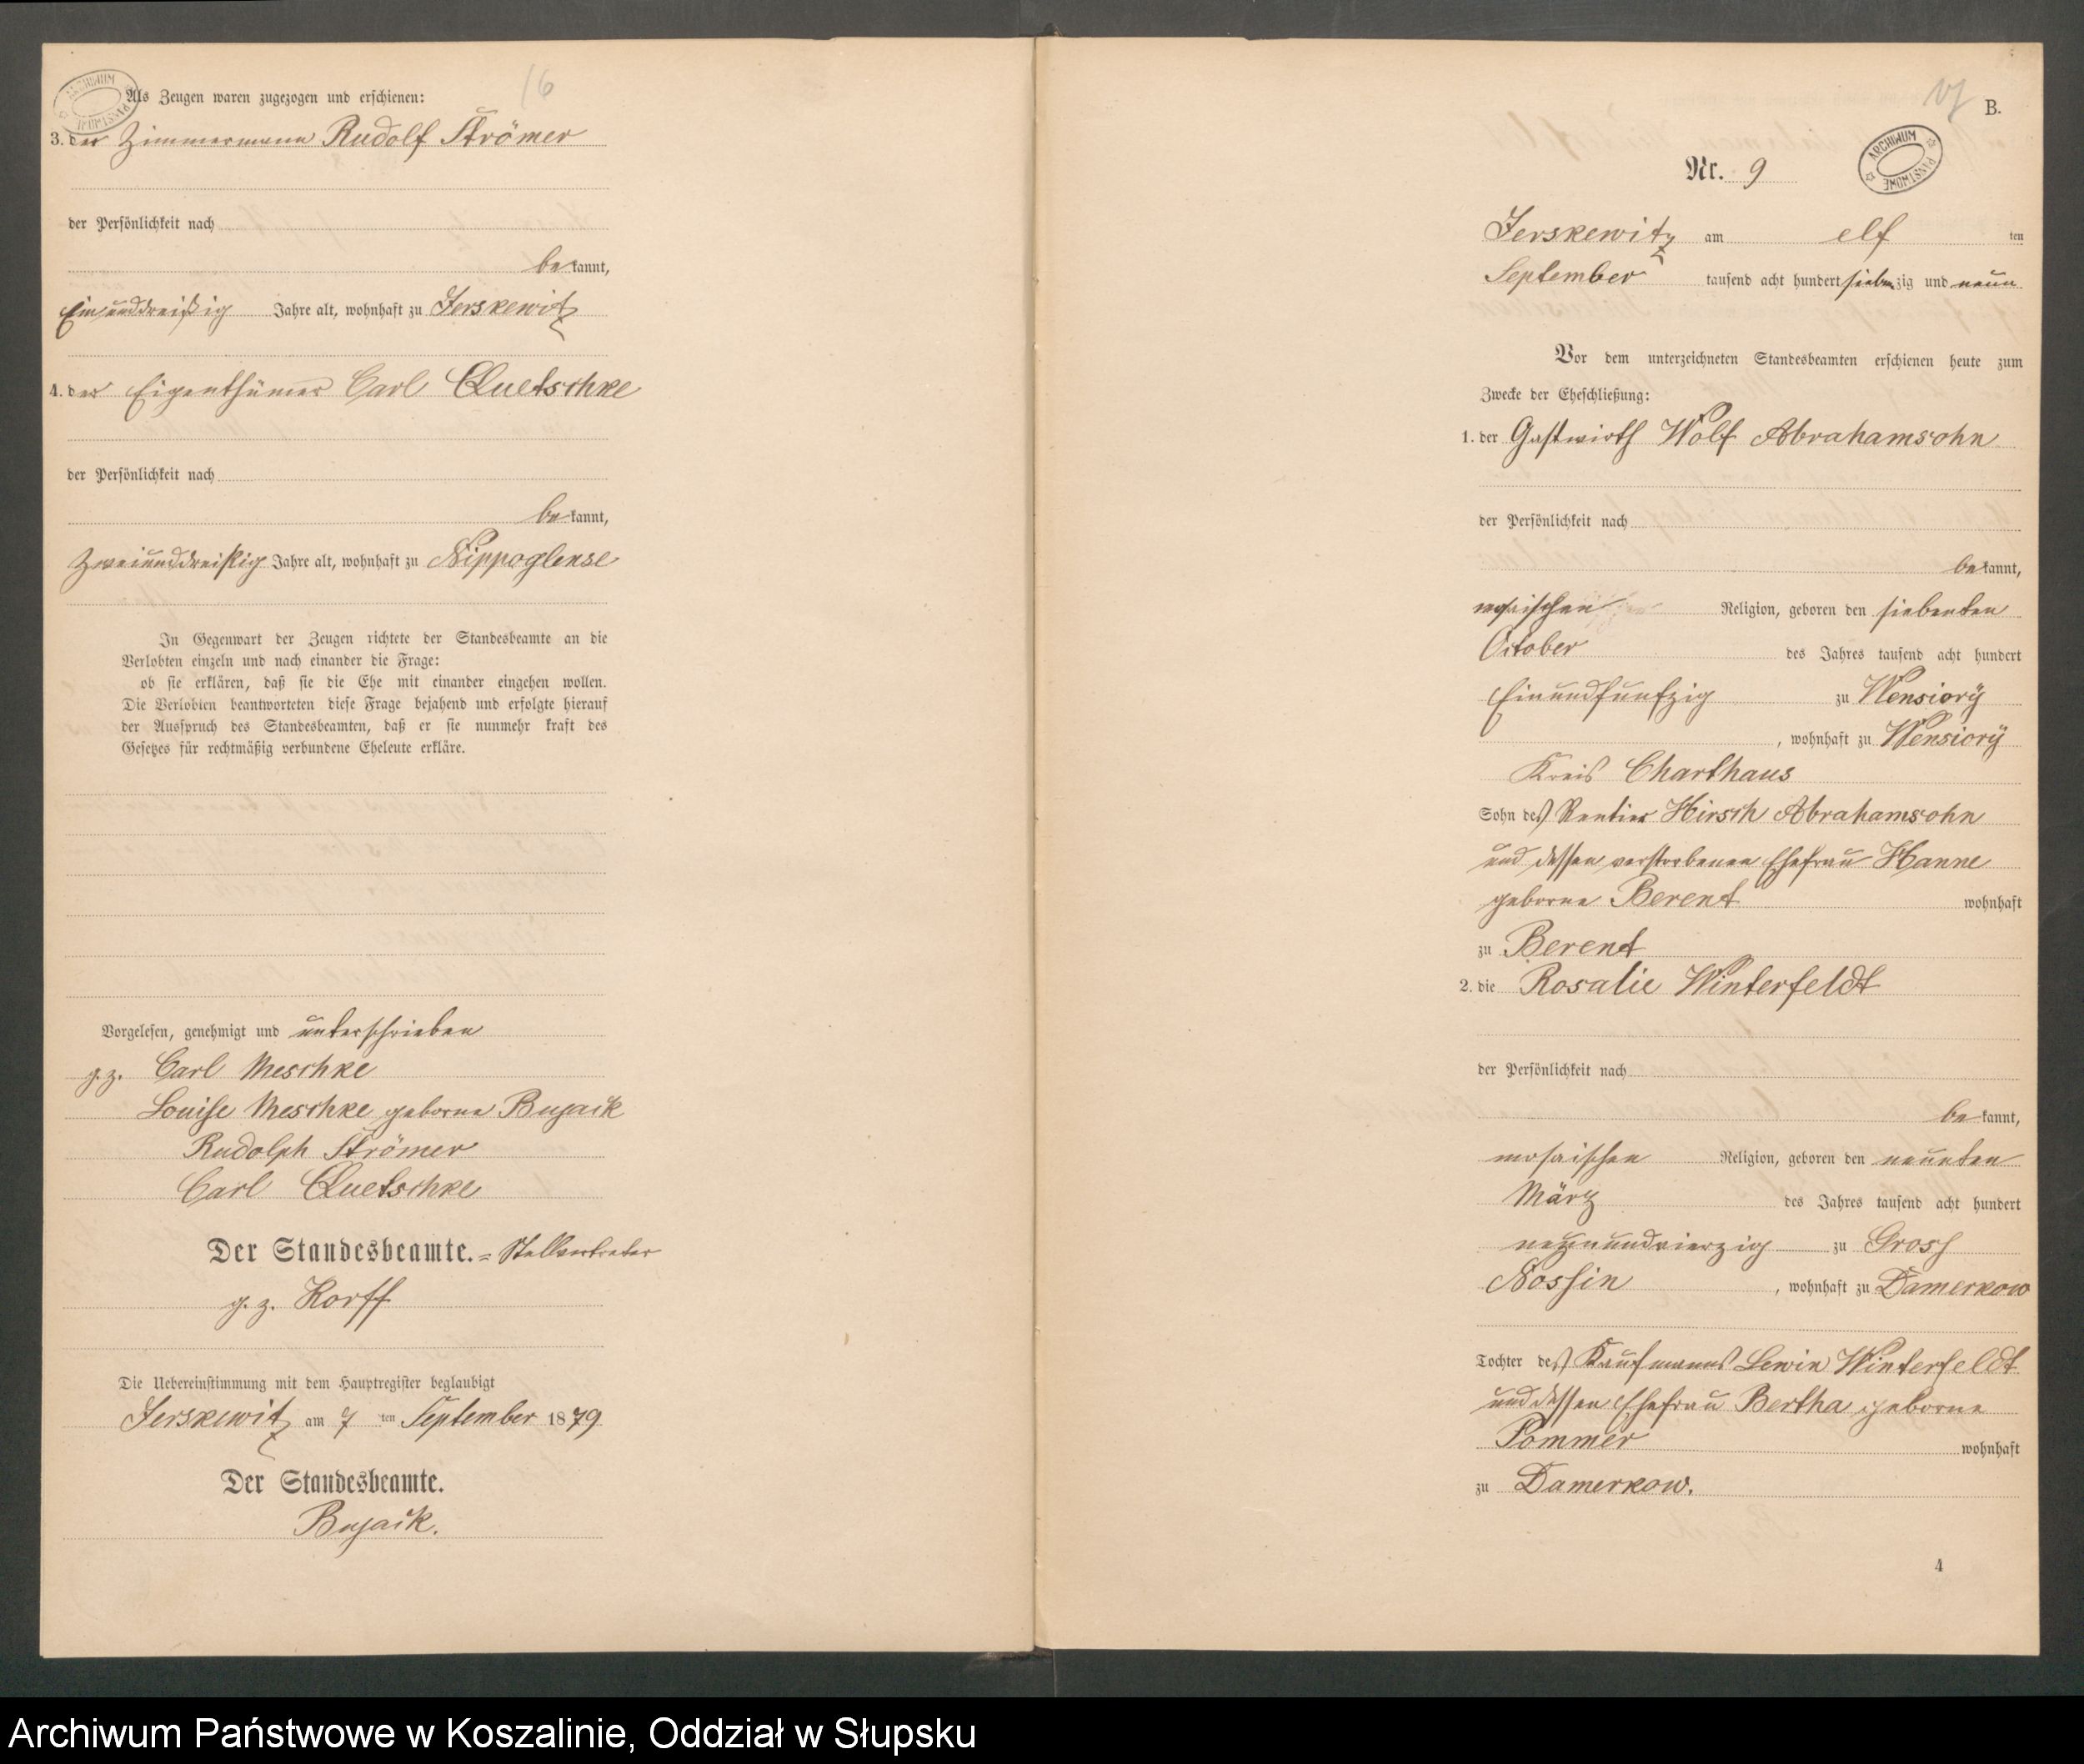 16
Als Zeugen waren zugezogen und erschienen:
3. der Zimmermann Rudolf Strömer
der Persönlichkeit nach
bekannt,
Einunddreißig Jahre alt, wohnhaft zu Jerskewitz
4. der Eigenthümer Carl Quetschke
der Persönlichkeit nach
bekannt,
Zweiunddreißig Jahre alt, wohnhaft zu Nippoglense
In Gegenwart der Zeugen richtete der Standesbeamte an die
Verlobten einzeln und nach einander die Frage:
ob sie erklären, daß sie die Ehe mit einander eingehen wollen.
Die Verlobten beantworteten diese Frage bejahend und erfolgte hierauf
der Ausspruch des Standesbeamten, daß er sie nunmehr kraft des
Gesetzes für rechtmäßig verbundene Eheleute erkläre.
Vorgelesen, genehmigt und unterschrieben
g. z. Carl Meschke
Louise Meschke geborne Bujack
Rudolph Strömer
Carl Quetschke
Der Standesbeamte. = Stellvertreter
g. z. Korff
Die Uebereinstimmung mit dem Hauptregister beglaubigt
Jerskewitz am 7 ten September 1879
Der Standesbeamte.
Bujack.
ARCHIWUM PAŃSTWOWE
17
B.
ARCHIWUM PAŃSTWOWE
Nr. 9
Jerskewitz am elf ten
September tausend acht hundert siebenzig und neun
Vor dem unterzeichneten Standesbeamten erschienen heute zum
Zwecke der Eheschließung:
1. der Gastwirth Wolf Abrahamsohn
der Persönlichkeit nach
bekannt,
mosaischen Religion, geboren den siebenten
October des Jahres tausend acht hundert
Einundfünfzig zu Wensiory
, wohnhaft zu Wensiory
Kreis Charthaus
Sohn des Rentier Hirsch Abrahamsohn
und dessen verstorbenen Ehefrau Hanne
geborne Berent wohnhaft
zu Berent
2. die Rosalie Winterfeldt
der Persönlichkeit nach
bekannt,
mosaischen Religion, geboren den neunten
März des Jahres tausend acht hundert
neunundvierzig zu Gross
Nossin, wohnhaft zu Damerkow
Tochter des Kaufmanns Lewin Winterfeldt
und dessen Ehefrau Bertha geborne
Pommer wohnhaft
zu Damerkow.
4
Archiwum Państwowe w Koszalinie, Oddział w Słupsku